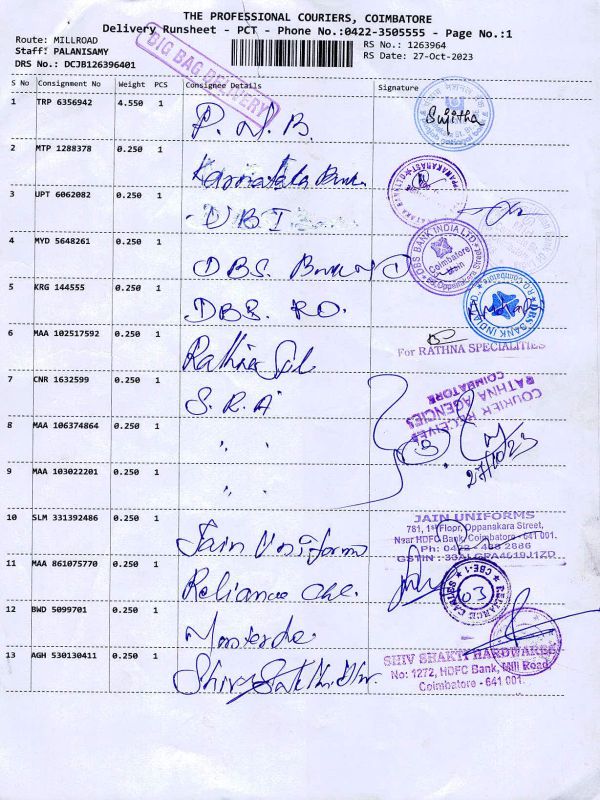 THE PROFESSIONAL COURIERS, COIMBATORE
Delivery Runsheet - PCT - Phone No.:0422-3505555 - Page No.:1
Route: MILLROAD
Staff: PALANISAMY
DRS No.: DCJB126396401
RS No.: 1263964
RS Date: 27-Oct-2023
BIG BAG DELIVERY
S No Consignment No Weight PCS Consignee Details Signature
1 TRP 6356942 4.550 1 P. N. B. Sujitha
2 MTP 1288378 0.250 1 Karnataka Bank
3 UPT 6062082 0.250 1 UBI
4 MYD 5648261 0.250 1 DBS Bank
DBS BANK INDIA LTD
Coimbatore
5 KRG 144555 0.250 1 DBS. RO.
DBS BANK INDIA
6 MAA 102517592 0.250 1 Rathna Spl.
For RATHNA SPECIALITIES
7 CNR 1632599 0.250 1 S. R. A
COURIER RECEIVES
RATHNA AGENCIES
COIMBATORE
8 MAA 106374864 0.250 1 " "
27/10/23
9 MAA 103022201 0.250 1 " "
10 SLM 331392486 0.250 1 Jain Uniforms
JAIN UNIFORMS
781, 1st Floor, Oppanakara Street,
Near HDFC Bank, Coimbatore - 641 001.
11 MAA 861075770 0.250 1 Reliance
CBE-1
03
12 BWD 5099701 0.250 1
13 AGH 530130411 0.250 1 Shiv Sakthi
SHIV SHAKTI HARDWARES
No: 1272, HDFC Bank, Mill Road,
Coimbatore - 641 001.